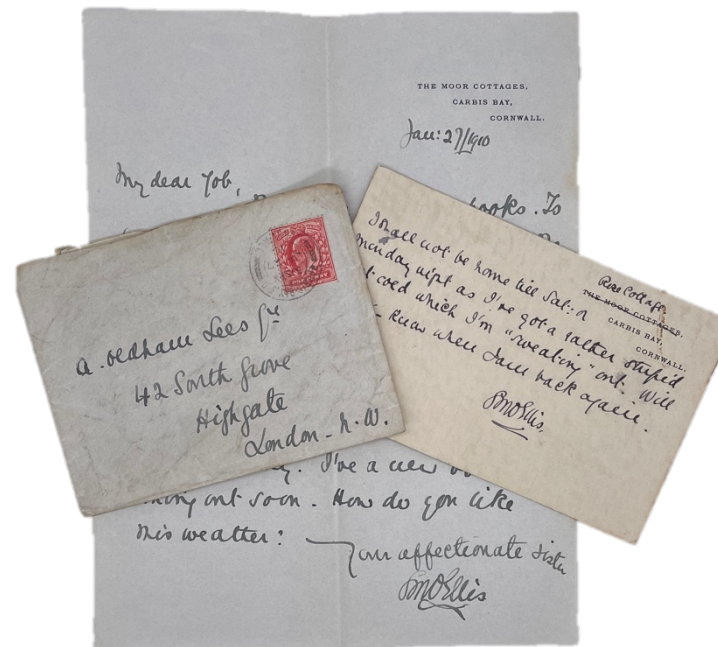 THE MOOR COTTAGES,
CARBIS BAY,
CORNWALL.
Jan: 27/1910
My dear Job,
books. To
A. Oedham Lees
42 South Grove
Highgate
London - N.W.
Cottage
THE MOOR COTTAGES,
CARBIS BAY,
CORNWALL.
I shall not be home till Sat: or
Monday night as I've got a rather stupid
cold which I'm "sweating" out. Will
know when I am back again.
EMOEllis
I've a new
out soon. How do you like
this weather:
Your affectionate sister
EMOEllis